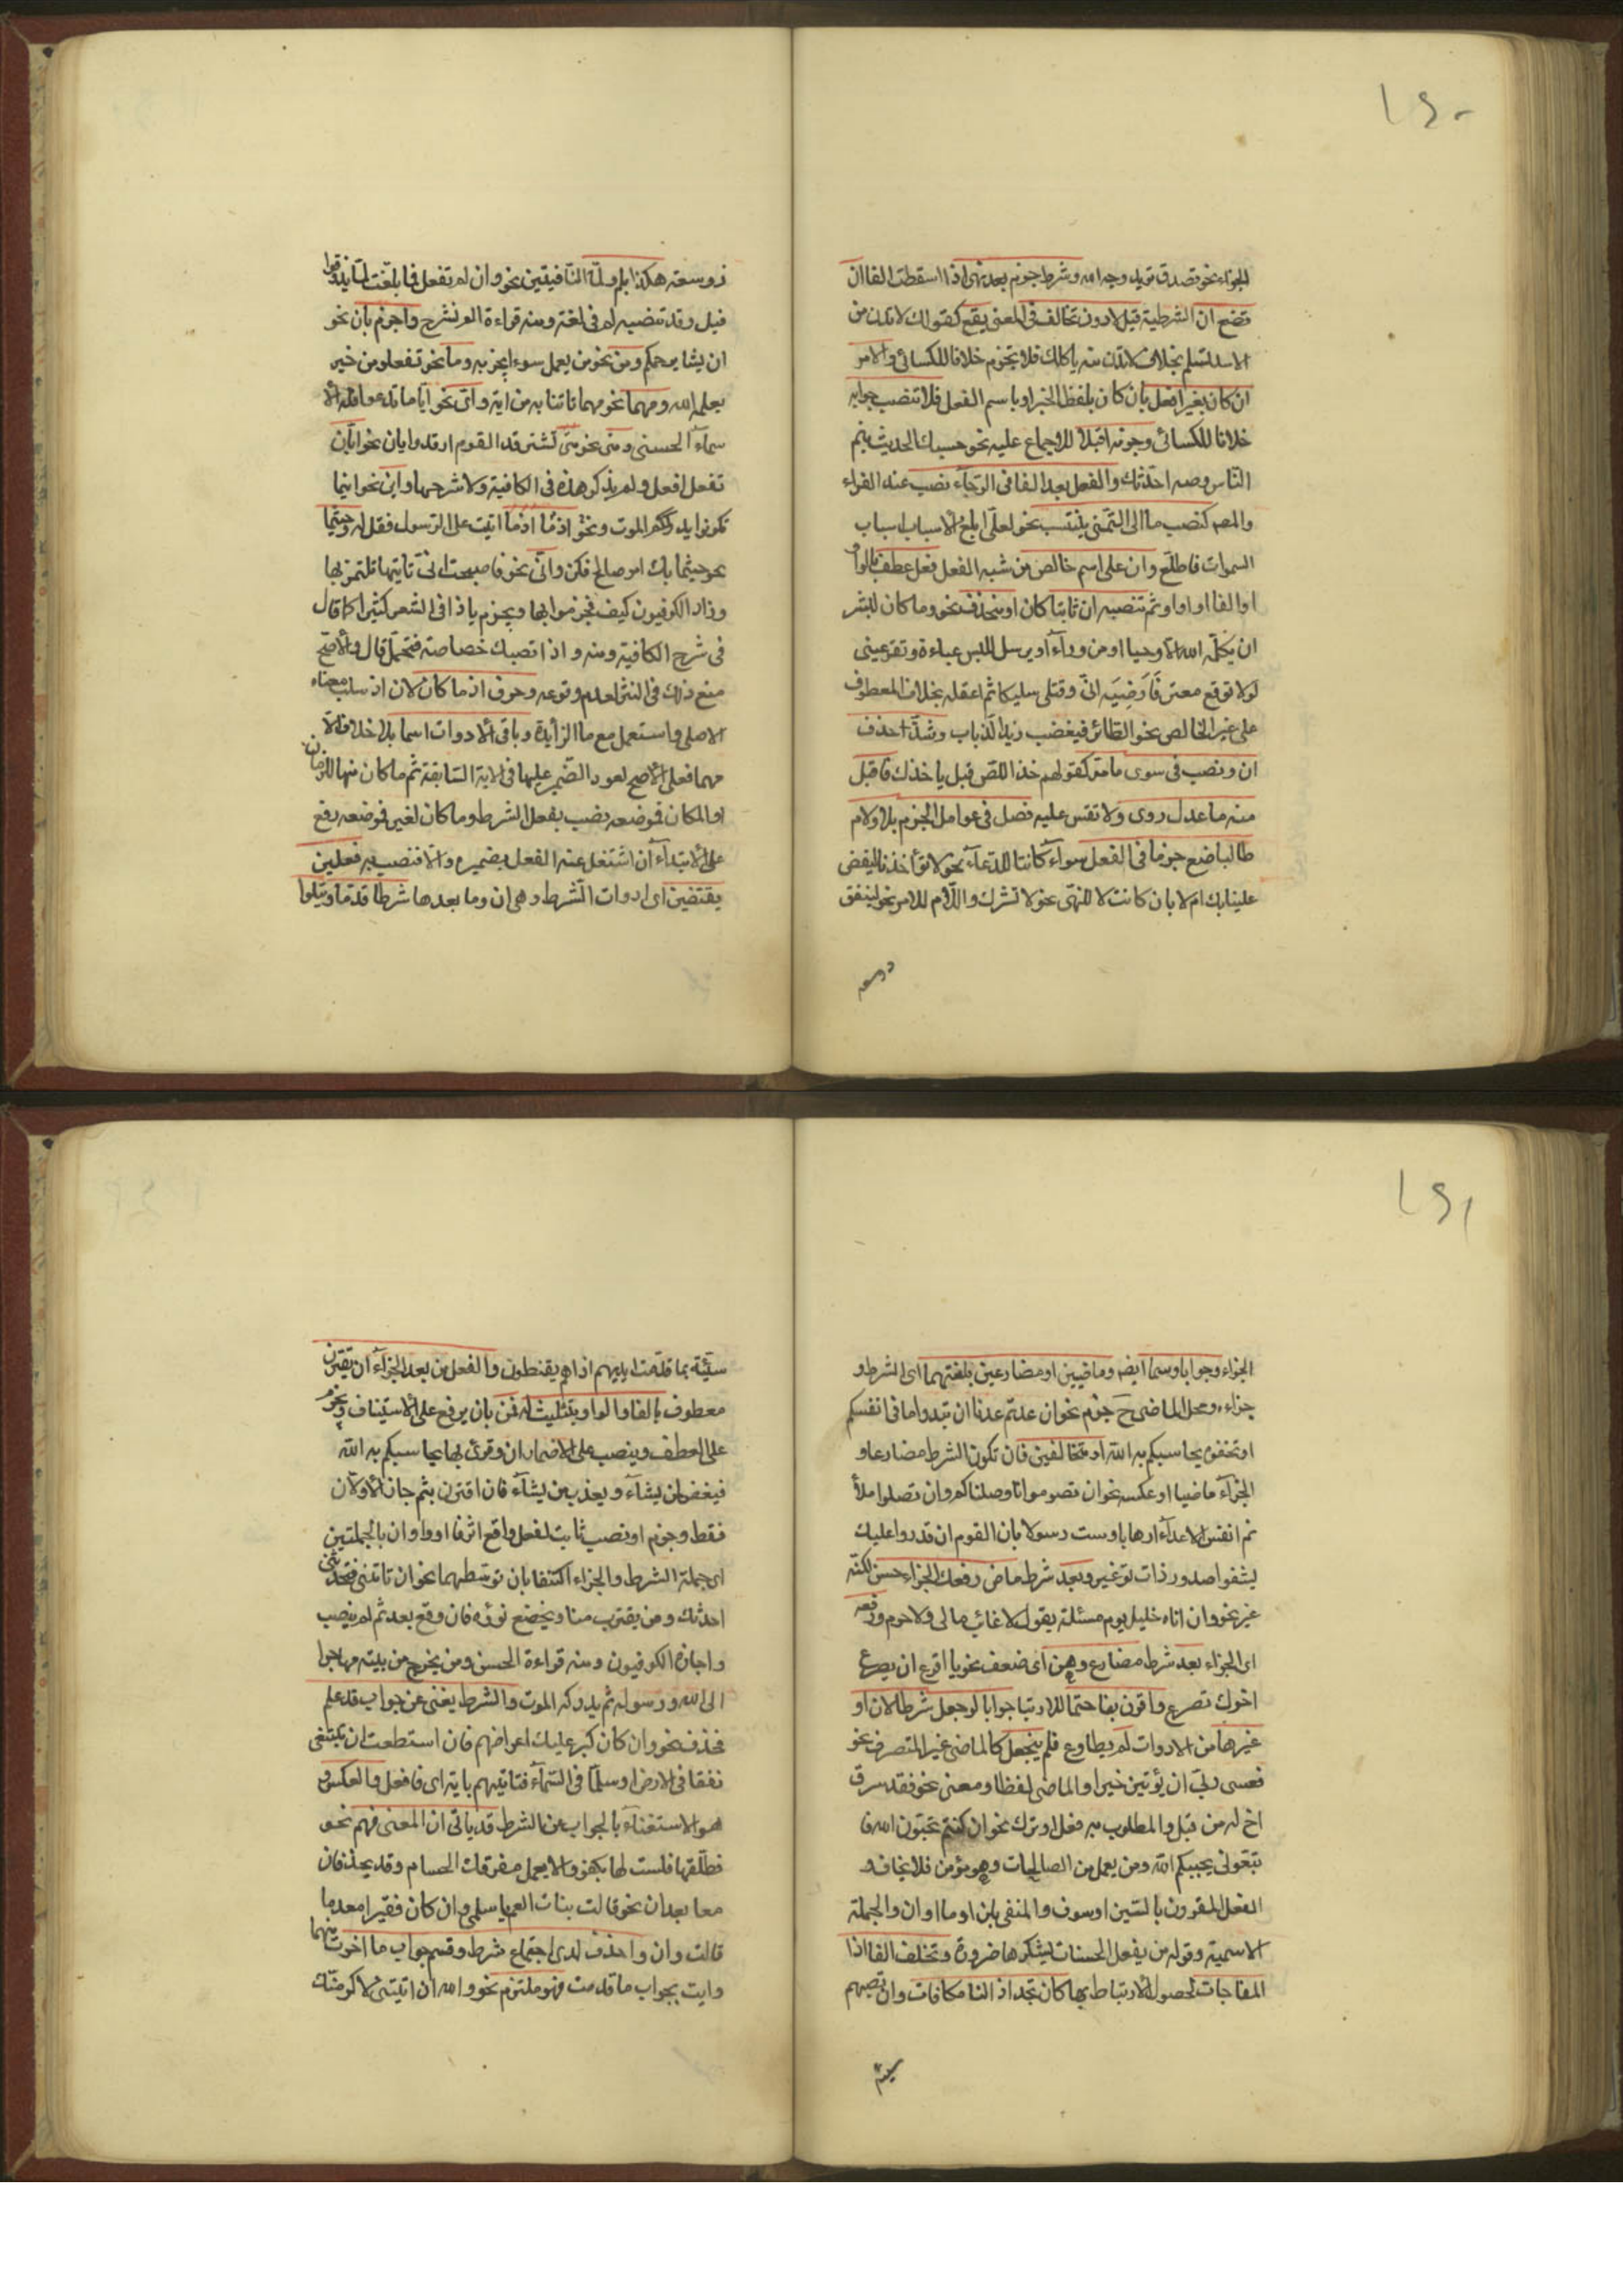 ١٤٠
الجزاء نحو تصدق تريد وجه الله وشرط جزم بعد نهى اذا اسقطت الفا ان
تضع ان الشرطية قبل لا دون تخالف فى المعنى يقع كقولك لا تدن من
الاسد تسلم بخلاف لا تدن منه ياكلك فلا تجزم خلافا للكسائى والامر
ان كان بغير افعل بان كان بلفظ الخبر او باسم الفعل فلا تنصب جوابه
خلافا للكسائى وجزمه اقبلا للاجماع عليه نحو حسبك الحديث ينم
النّاس وصه احدّثك والفعل بعد الفا فى الرّجآء نصب عند الفراء
والمصـ كنصب ما الى التمّنى ينتسب نحو لعلّى ابلغ الاسباب اسباب
السموات فاطلّع وان على اسم خالص من شبه الفعل فعل عطف بالواو
او الفا او او او ثم تنصبه ان ثابتا كان او منحذف نحو وما كان لبشر
ان يكلّمه الله الّا وحيا او من ورآء او يرسل للبس عباءة وتقر عينى
لولا توقع معترّ فَاُرضِيَه انّى وقتلى سليكا ثم اعقله بخلاف المعطوف
على غير الخالص نحو الطّائر فيغضب زيد الّذباب وشذّ حذف
ان ونصب فى سوى ما مرّ كقولهم خذ اللصّ قبل ياخذك فاقبل
منه ما عدل روى ولا تقس عليه فصل فى عوامل الجزم بلا ولام
طالبا ضع جزما فى الفعل سوآء كانتا للدّعآء نحو لا تؤاخذنا ليقض
علينا ربك ام لا بان كانت لا للنهّى نحو لا تشرك والّلام للامر نحو لينفق
ذو سعه
ذو سعته هكذا بلم ولمّا النّافيتين نحو وان لم تفعل فما بلّغت لمّا يذوقوا
قيل وقد تنصبه لم فى لغة ومنه قراءة الم نشرح واجزم بان نحو
ان يشا يرحمكم ومن نحو من يعمل سوءا يجز به وما نحو تفعلو من خير
يعلمه الله ومهما نحو مهما تاتنا به من اية واىّ نحو ايّا ما تدعوا فله الا
سمآء الحسنى ومتى نحو متى لشتر قد القوم ارفد وايان نحو ايّان
تفعل افعل ولم يذكر هذه فى الكافية ولا شرحها واين نحو اينما
تكونوا يدرككم الموت ونحو اذما اذما اتيت على الرّسول فقل له وحيثما
نحو حيثما يك امر صالح فكن وانّى نحو فاصبحت انىّ تاتيتها تلتمز بها
وزاد الكوفيون كيف فجزموا بها ويجزم باذا فى الشعر كثيرا كما قال
فى شرح الكافية ومنه و اذا تصبك خصاصة فتحمّل قال والاصحّ
منع ذلك فى النثر لعدم وقوعه وحرف اذما كان لان اذ سلب معناه
الاصلى واستعمل مع ما الزائدة وباقى الادوات اسما بلا خلاف الّا
مهما فعلى الاصحّ لعود الضّمير عليها فى الاية السّابقة ثم ما كان منها للزمان
او المكان فموضعه نصب بفعل الشرط وما كان لغيره فموضعه رفع
على الابتدآء ان اشتغل عنه الفعل بضميره والّا فنصب به فعلين
يقتضين اى ادوات الّشرط وهى ان وما بعدها شرطا قدّما ويتلوا
١٤١
الجزاء وجوابا وسما ايضـ وماضيين او مضارعين بلغتهما اى الشرط و
جزاءه ومحل الماضى حَ جزم نحو ان عدتم عدنا ان تبدوا ما فى انفسكم
او تخفوه يحاسبكم به الله او متخالفين فان تكون الشرط مضارعا و
الجزآء ماضيا او عكسه نحو ان تصرمونا وصلناكم وان تصلوا ملأ
تم انفس الاعدآء ارهابا وست رسولا بان القوم ان قدروا عليك
يشفوا صدور ذات توغير وبعد شرط ماض رفعك الجزاء حسن لكنّه
غير نحو وان اتاه خليل يوم مسئلة يقول لا غائب مالى ولا حرم ورفعه
اى الجزاء بعد شرط مضارع وهن اى ضعف نحو يا اقرع ان يصرع
اخوك تصرع واقرن بفا حتما للارتبا جوابا لو جعل شرطا لان او
غيرها من الادوات لم يطاوع فلم ينجعل كالماضى غير المتصرف نحو
فعسى ربىّ ان يؤتين خيرا والماضى لفظا ومعنى نحو فقد سرق
اخ له من قبل والمطلوب به فعل او ترك نحو ان كنتم تحبّون الله فا
تبعونى يحببكم اللّه ومن يعمل من الصالحات وهو مؤمن فلا يخاف و
الفعل المقرون بالسّين او سوف والمنفى بلن او ما او ان والجملة
الاسمية وقوله من يفعل الحسنات الله يشكرها ضرورة وتخلف الفا اذا
المفاجات لحصول الارتباط بها كان تجد اذا لنا مكافات وان تصبهم
سيئة
سيّئة بما قدّمت ايديهم اذا هم يقنطون والفعل من بعد الجزآء ان يقترن
معطوف بالفا والواو بتثليث له قمن بان يرفع على الاستيناف ويجزم
على العطف وينصب على اضماران وقرئ بها يحاسبكم به اللّه
فيغفر لمن يشآء ويعذب من يشآء فان اقترن بثم جاز الاولان
فقط وجزم او نصب ثابت لفعل واقع اثر فا او واو ان بالجملتين
اى جملة الشرط والجزاء اكتنفا بان توسّطهما نحو ان تاتنى فتحدثنى
احدثك ومن يقترب منا ويخضع نؤوه فان وقع بعد ثم لم ينصب
واجازه الكوفيون ومنه قراءة الحسن ومن يخرج من بيته مهاجرا
الى الله ورسوله ثم يدركه الموت والشرط يغنى عن جواب قد علم
فحذف نحو وان كان كبر عليك اعراضهم فان استطعت ان تبتغى
نفقا فى الارض او سلّما فى السّمآء فتاتيهم باية اى فافعل والعكس و
هو الاستغنآء بالجواب عن الشرط قد ياتى ان المعنى فهم نحو
فطلّقها فلست لها بكفو والا يعل مفرقك الحسام وقد يحذفان
معا بعد ان نحو قالت بنات العم يا سلمى وان كان فقيرا معدما
قالت وان واحذف لدى اجتماع شرط وقسم جواب ما اخرت منهما
وايت بجواب ما قدمت فهو ملتزم نحو والله ان اتيتنى لا كرمنّك